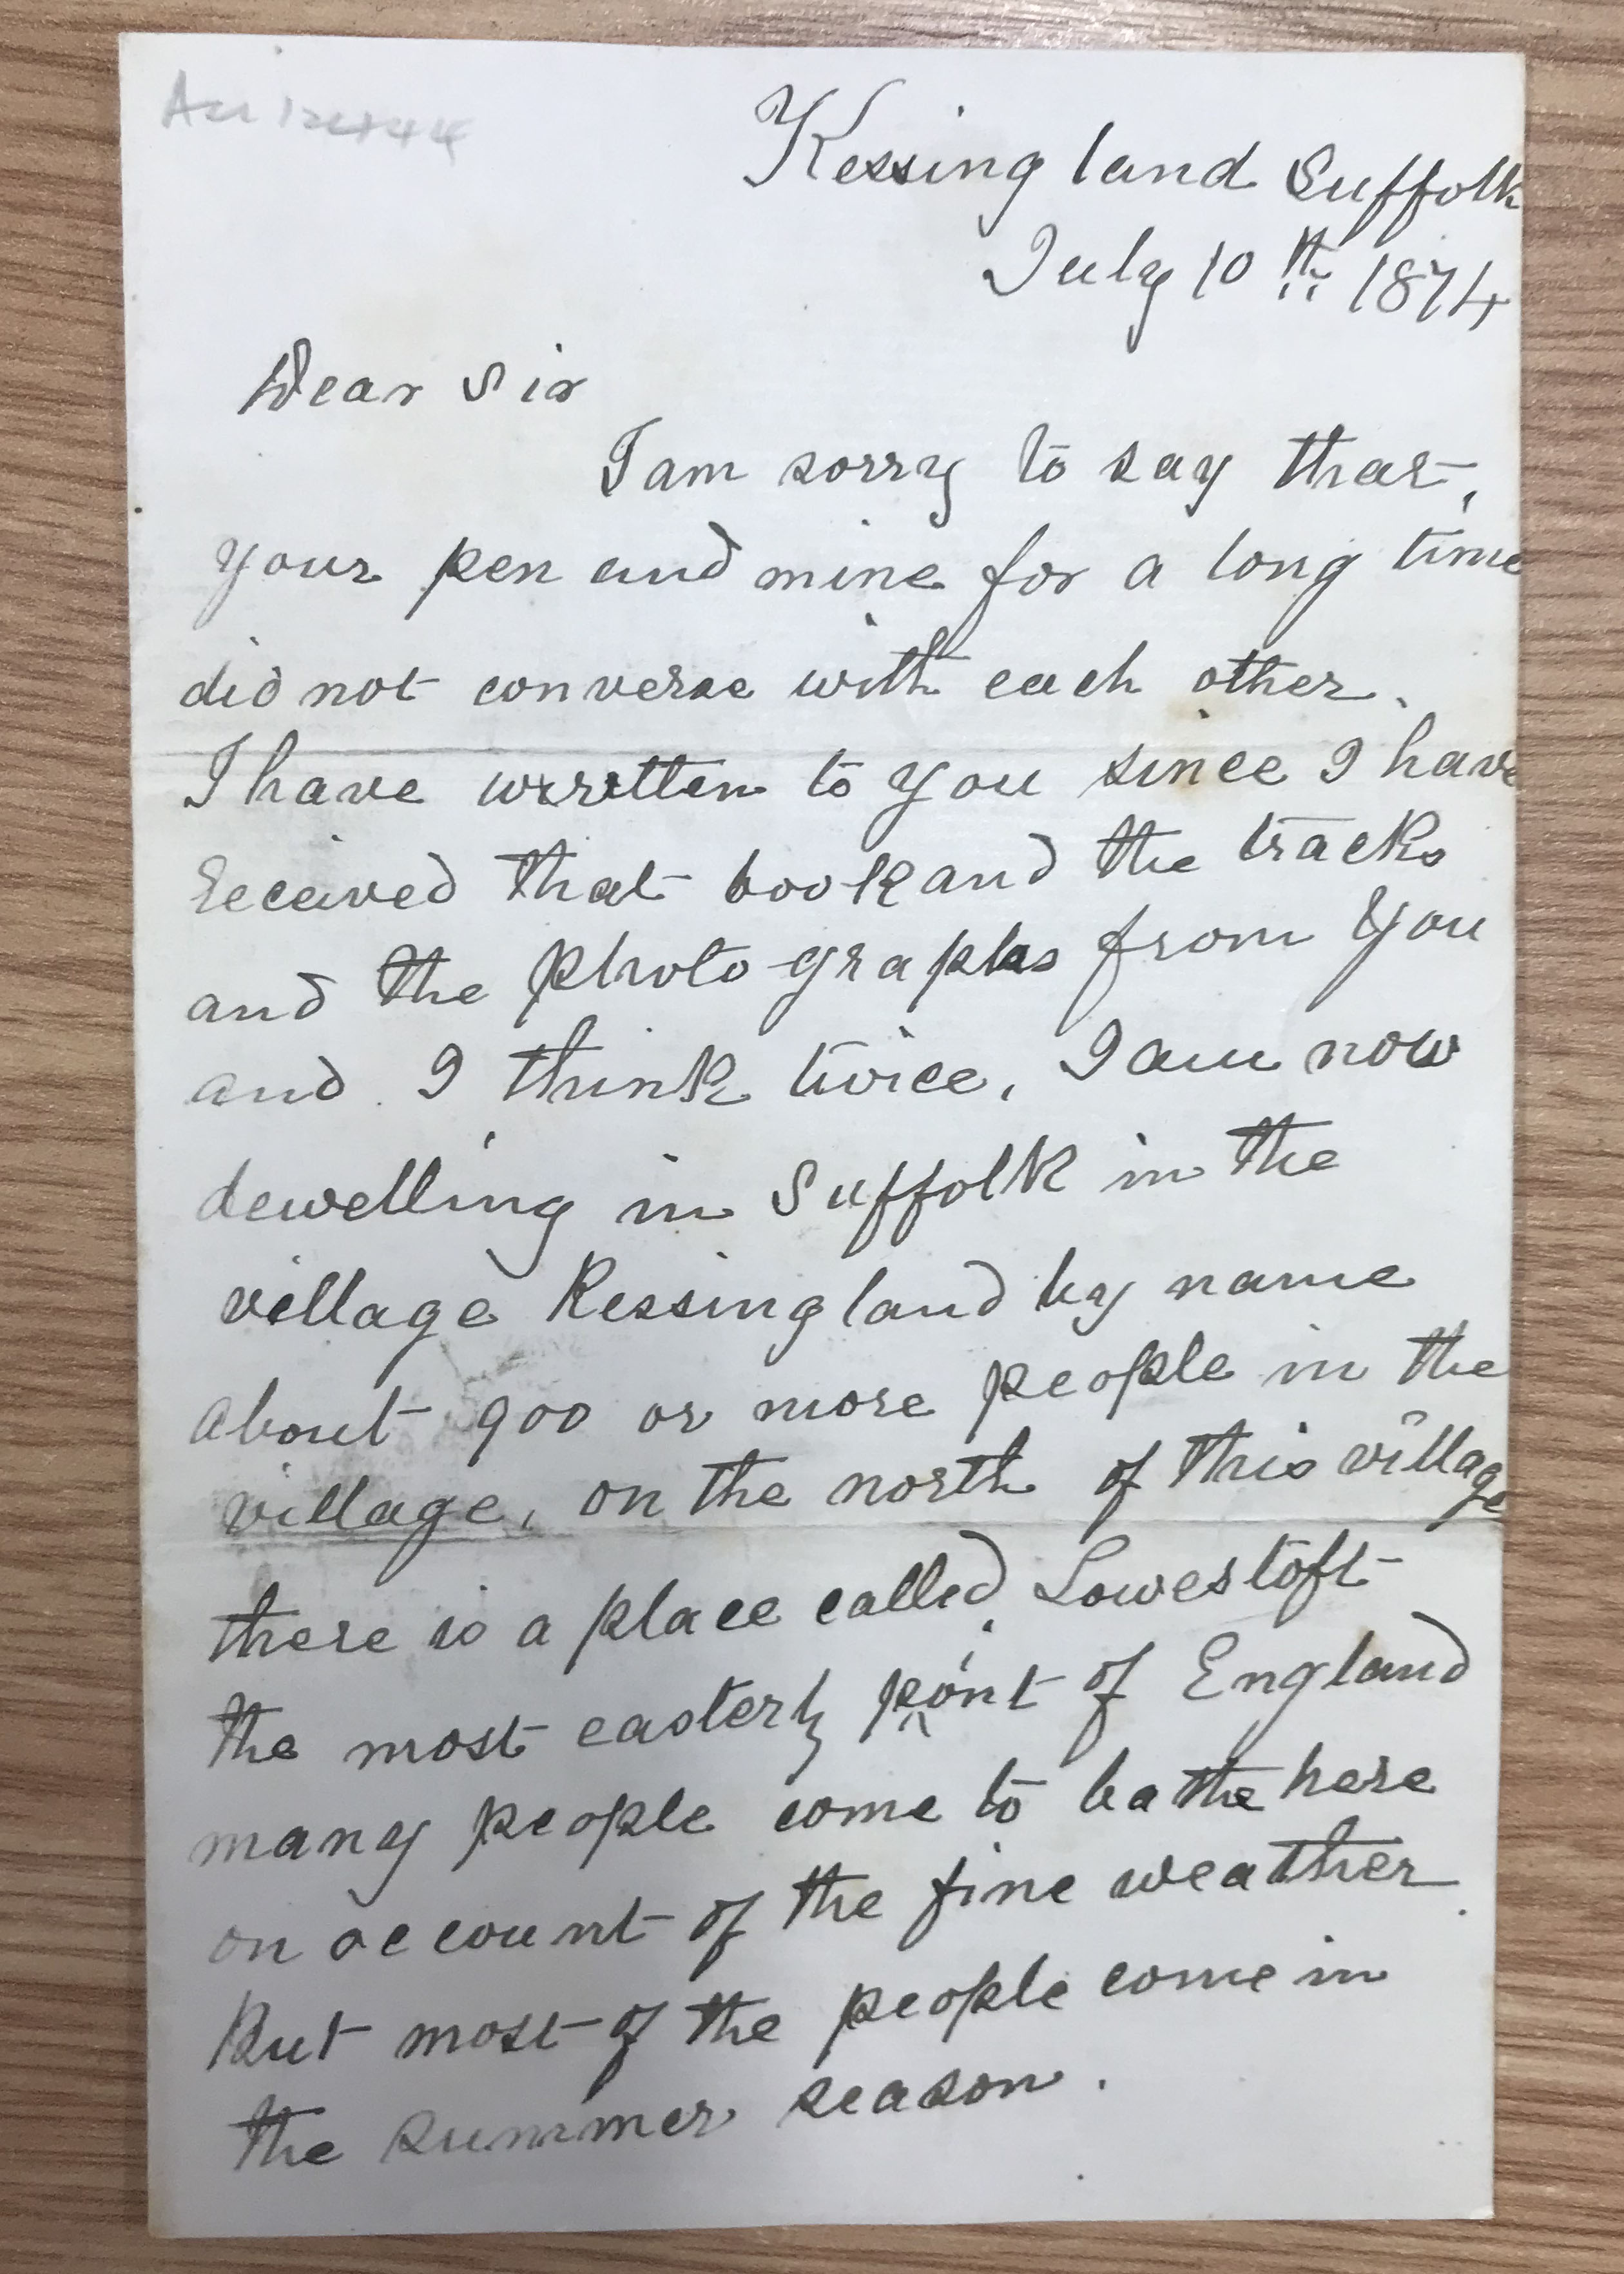 Kessing land Suffolk
July 10th 1874
Dear Sir
I am sorry to say that,
your pen and mine for a long time
did not converse with each other.
I have written to you since I have
received that book and the tracks
and the photo-graphs from you
and I think twice, I am now
dewelling in Suffolk in the
village Kessingland by name
about 900 or more people in the
village, on the north of this village
there is a place called Lowestoft
the most easterly point of England
many people come to bathe here
on account of the fine weather.
But most of the people come in
the summer season.